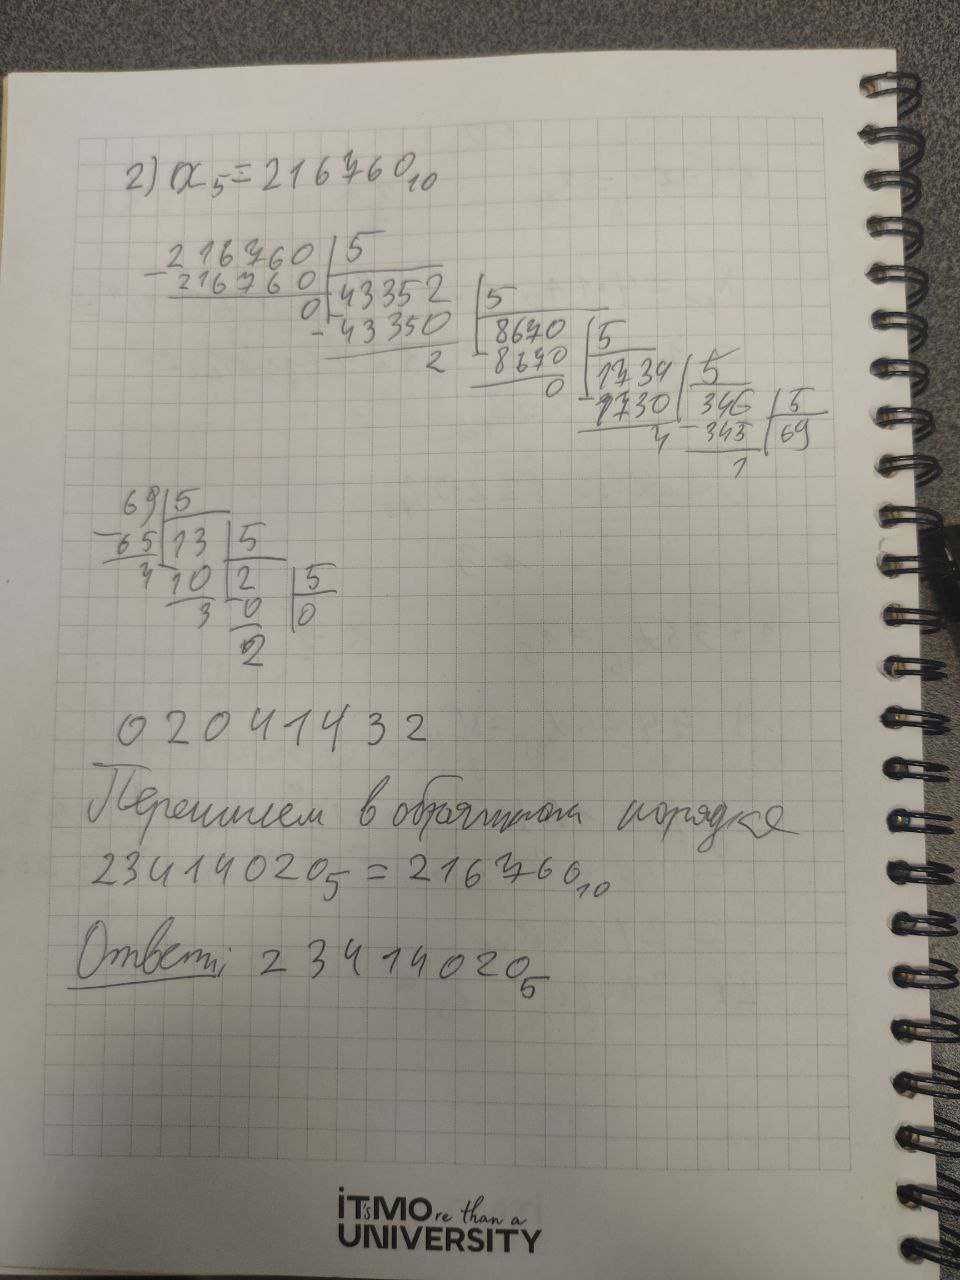 2) x₅ = 216760₁₀
216760 | 5
- 216760 | 43352 | 5
0 - 43350 | 8670 | 5
2 - 8670 | 1734 | 5
0 - 1730 | 346 | 5
4 - 345 | 69
1
69 | 5
- 65 | 13 | 5
4 - 10 | 2 | 5
3 - 0 | 0
2
02041432
Перепишем в обратном порядке
23414020₅ = 216760₁₀
Ответ: 23414020₅
iT's MOre than a
UNIVERSITY